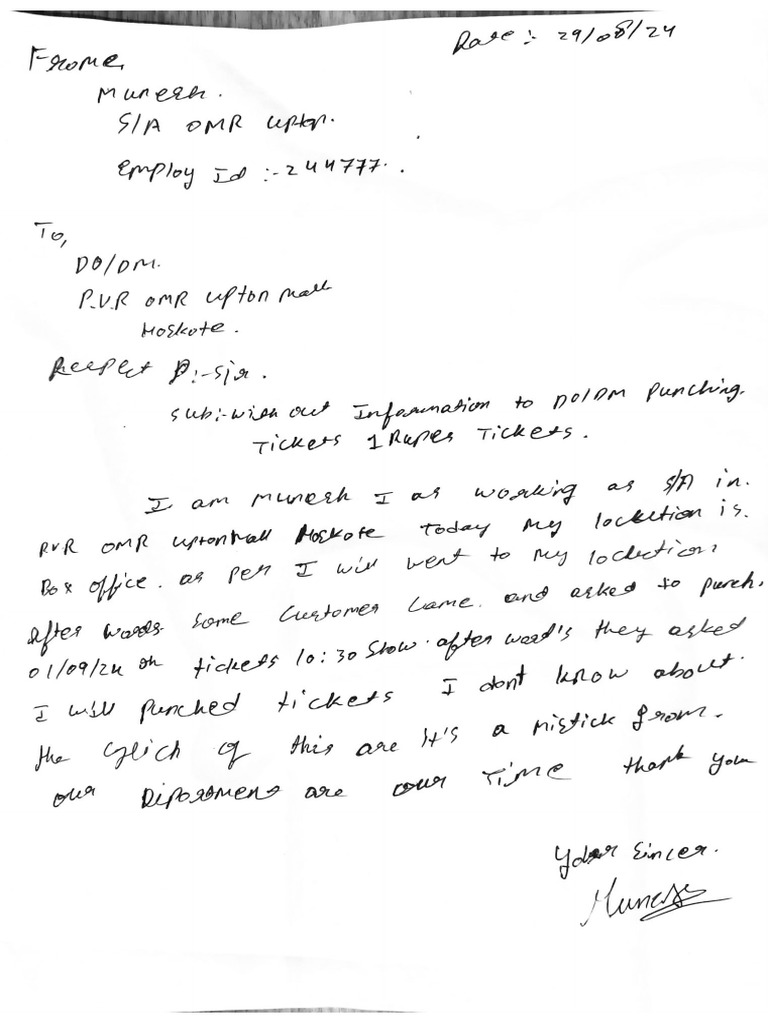 Date :- 29/08/24
Frome,
Munesh.
S/A OMR Upton.
Employ Id :- 244777.
To,
DO/DM.
P.V.R OMR Upton Mall
Hoskote.
Respect :- Sir.
Sub:- with out Information to DO/DM Punching.
Tickets 1 Rupes Tickets.
I am Munesh I as working as S/A in.
PVR OMR Upton Mall Hoskote Today My is.
Box office. as per I will went to My
After words some Customer Came. and asked to punch.
01/09/24 on tickets 10:30 Show. after word's they asked
I will punched tickets I don't know about.
the Glich of this are it's a Mistick from.
our are our Time thank you
Your Sincer.
Munesh